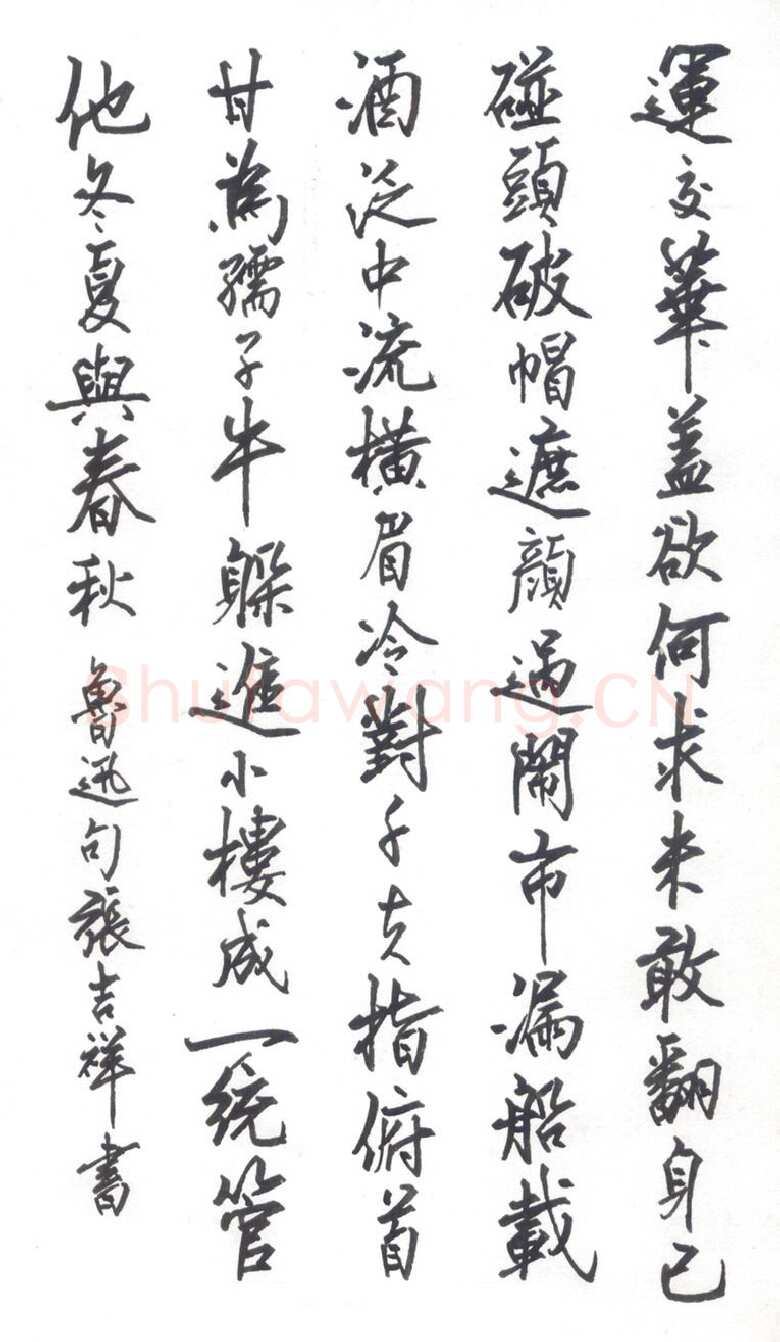 運交華蓋欲何求未敢翻身已
碰頭破帽遮顏過鬧市漏船載
酒泛中流橫眉冷對千夫指俯首
甘為孺子牛躲進小樓成一统管
他冬夏與春秋 魯迅句張吉祥書
Shufawang.CN